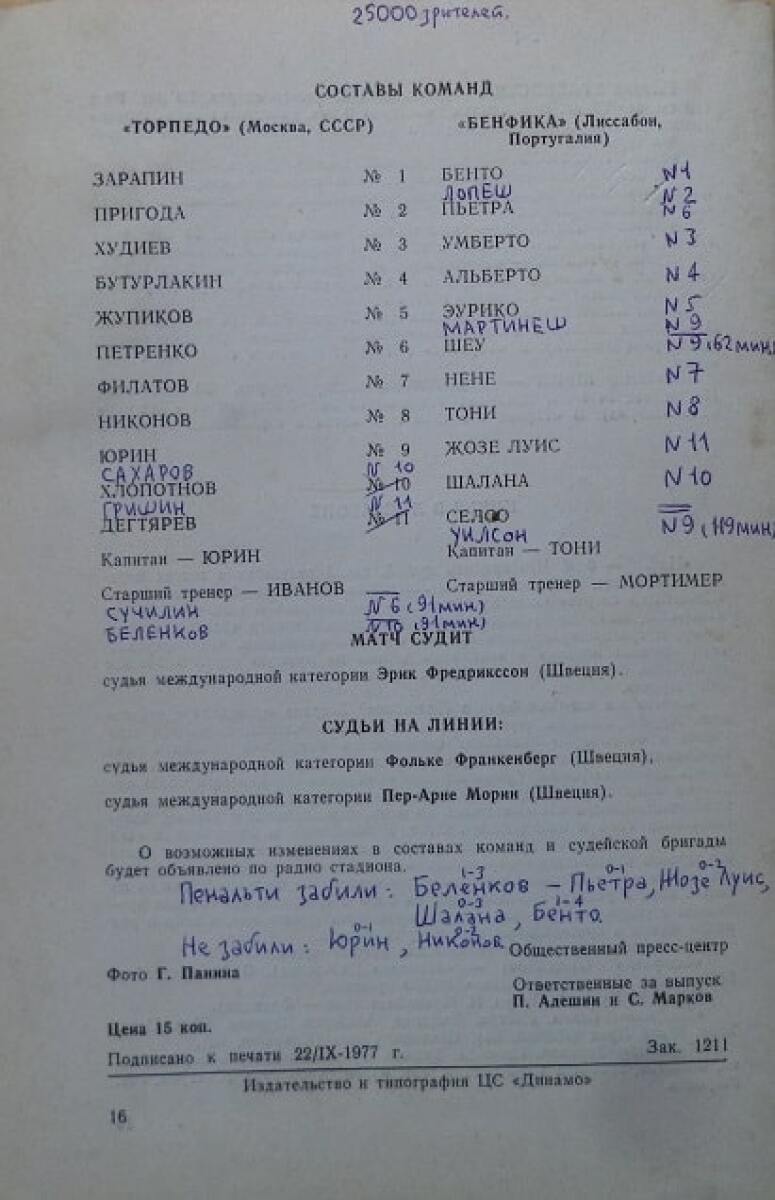 25000 зрителей.
СОСТАВЫ КОМАНД
«ТОРПЕДО» (Москва, СССР) «БЕНФИКА» (Лиссабон,
Португалия)
ЗАРАПИН № 1 БЕНТО N1
ЛОПЕШ N2
ПРИГОДА № 2 ПЬЕТРА N6
ХУДИЕВ № 3 УМБЕРТО N3
БУТУРЛАКИН № 4 АЛЬБЕРТО N4
ЖУПИКОВ № 5 ЭУРИКО N5
МАРТИНЕШ N9
ПЕТРЕНКО № 6 ШЕУ N9 (62 мин)
ФИЛАТОВ № 7 НЕНЕ N7
НИКОНОВ № 8 ТОНИ N8
ЮРИН № 9 ЖОЗЕ ЛУИС N11
САХАРОВ N10
ХЛОПОТНОВ № 10 ШАЛАНА N10
ГРИШИН N11
ДЕГТЯРЕВ № 11 СЕЛСО N9 (119 мин)
УИЛСОН
Капитан — ЮРИН Капитан — ТОНИ
Старший тренер — ИВАНОВ Старший тренер — МОРТИМЕР
СУЧИЛИН N6 (91 мин)
БЕЛЕНКОВ N10 (91 мин)
МАТЧ СУДИТ
судья международной категории Эрик Фредрикссон (Швеция).
СУДЬИ НА ЛИНИИ:
судья международной категории Фольке Франкенберг (Швеция),
судья международной категории Пер-Арне Морин (Швеция).
О возможных изменениях в составах команд и судейской бригады
будет объявлено по радио стадиона.
1-3 0-1 0-2
Пенальти забили: Беленков — Пьетра, Жозе Луис,
0-3 1-4
Шалана, Бенто.
0-1 0-2
Не забили: Юрин, Никонов.
Общественный пресс-центр
Фото Г. Панина
Ответственные за выпуск
П. Алешин и С. Марков
Цена 15 коп.
Подписано к печати 22/IX-1977 г. Зак. 1211
Издательство и типография ЦС «Динамо»
16